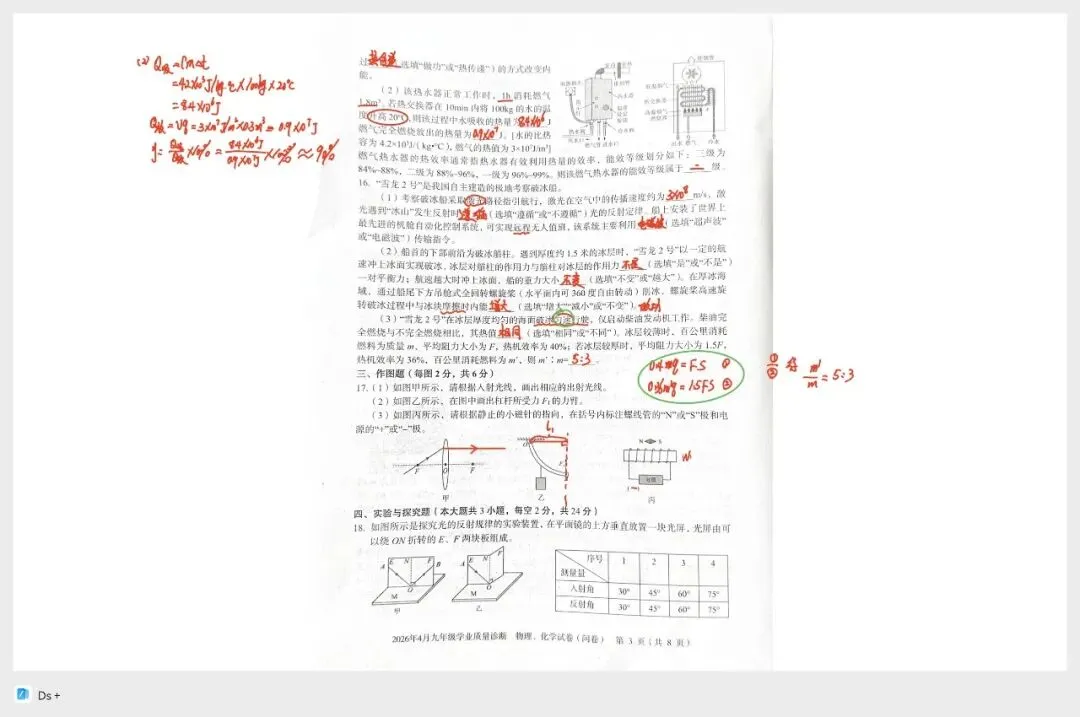 (2) Q吸=Cm△t
=4.2×10³J/(kg·℃)×100kg×20℃
=8.4×10⁶J
Q放=Vq=3×10⁷J/m³×0.3m³=0.9×10⁷J
η=Q吸/Q放×100%=8.4×10⁶J/0.9×10⁷J×100%≈93%
过热传递(选填“做功”或“热传递”)的方式改变内
能。
(2)该热水器正常工作时,1h消耗燃气
1.8m³。若热交换器在10min内将100kg的水的温
度升高20℃,则该过程中水吸收的热量为8.4×10⁶J
燃气完全燃烧放出的热量为0.9×10⁷J。[水的比热
容为4.2×10³J/(kg·℃),燃气的热值为3×10⁷J/m³]
燃气热水器的热效率通常指热水器有效利用热量的效率,能效等级划分如下:三级为
84%~88%,二级为88%~96%,一级为96%~99%。则该燃气热水器的能效等级属于二级。
16.“雪龙2号”是我国自主建造的极地考察破冰船。
(1)考察破冰船采取激光路径指引航行,激光在空气中的传播速度约为3×10⁸m/s,激
光遇到“冰山”发生反射时遵循(选填“遵循”或“不遵循”)光的反射定律。船上安装了世界上
最先进的机舱自动化控制系统,可实现远程无人值班,该系统主要利用电磁波(选填“超声波”
或“电磁波”)传输指令。
(2)船首的下部前沿为破冰艏柱。遇到厚度约1.5米的冰层时,“雪龙2号”以一定的航
速冲上冰面实现破冰,冰层对艏柱的作用力与艏柱对冰层的作用力不是(选填“是”或“不是”)
一对平衡力;航速越大时冲上冰面,船的重力大小不变(选填“不变”或“越大”)。在厚冰海
域,通过船尾下方吊舱式全回转螺旋桨(水平面内可360度自由转动)削冰,螺旋桨高速旋
转破冰过程中与冰块摩擦时内能增大(选填“增大”“减小”或“不变”)。做功
(3)“雪龙2号”在冰层厚度均匀的海面破冰匀速行驶,仅启动柴油发动机工作。柴油完
全燃烧与不完全燃烧相比,其热值相同(选填“相同”或“不同”)。冰层较薄时,百公里消耗
燃料为质量m,平均阻力大小为F,热机效率为40%;若冰层较厚时,平均阻力大小为1.5F,
热机效率为36%,百公里消耗燃料为m′,则m′:m=5:3。
0.4mq=FS ①
0.36m′q=1.5FS ②
①/② 得 m′/m=5:3
三、作图题(每图2分,共6分)
17.(1)如图甲所示,请根据入射光线,画出相应的出射光线。
(2)如图乙所示,在图中画出杠杆所受力F₁的力臂。
(3)如图丙所示,请根据静止的小磁针的指向,在括号内标注螺线管的“N”或“S”极和电
源的“+”或“-”极。
F O F
甲
L₁
O
F₁
乙
N S
N
电源
丙
四、实验与探究题(本大题共3小题,每空2分,共24分)
18.如图所示是探究光的反射规律的实验装置,在平面镜的上方垂直放置一块光屏,光屏由可
以绕ON折转的E、F两块板组成。
A E N F B
O
M
甲
A E N F
O
M
乙
序号 1 2 3 4
测量量
入射角 30° 45° 60° 75°
反射角 30° 45° 60° 75°
2026年4月九年级学业质量诊断 物理、化学试卷(问卷) 第3页(共8页)
Ds +